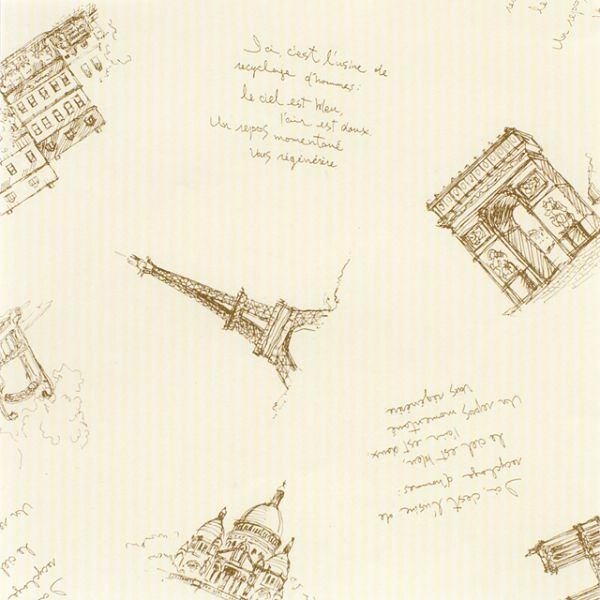 Ici, c'est l'usine de
recyclage d'hommes:
le ciel est bleu,
l'air est doux.
Un repos momentané
Vous régénère
Ici, c'est l'usine de
recyclage d'hommes:
le ciel est bleu,
l'air est doux.
Un repos momentané
Vous régénère
le
Un repos
le ciel
recyclage